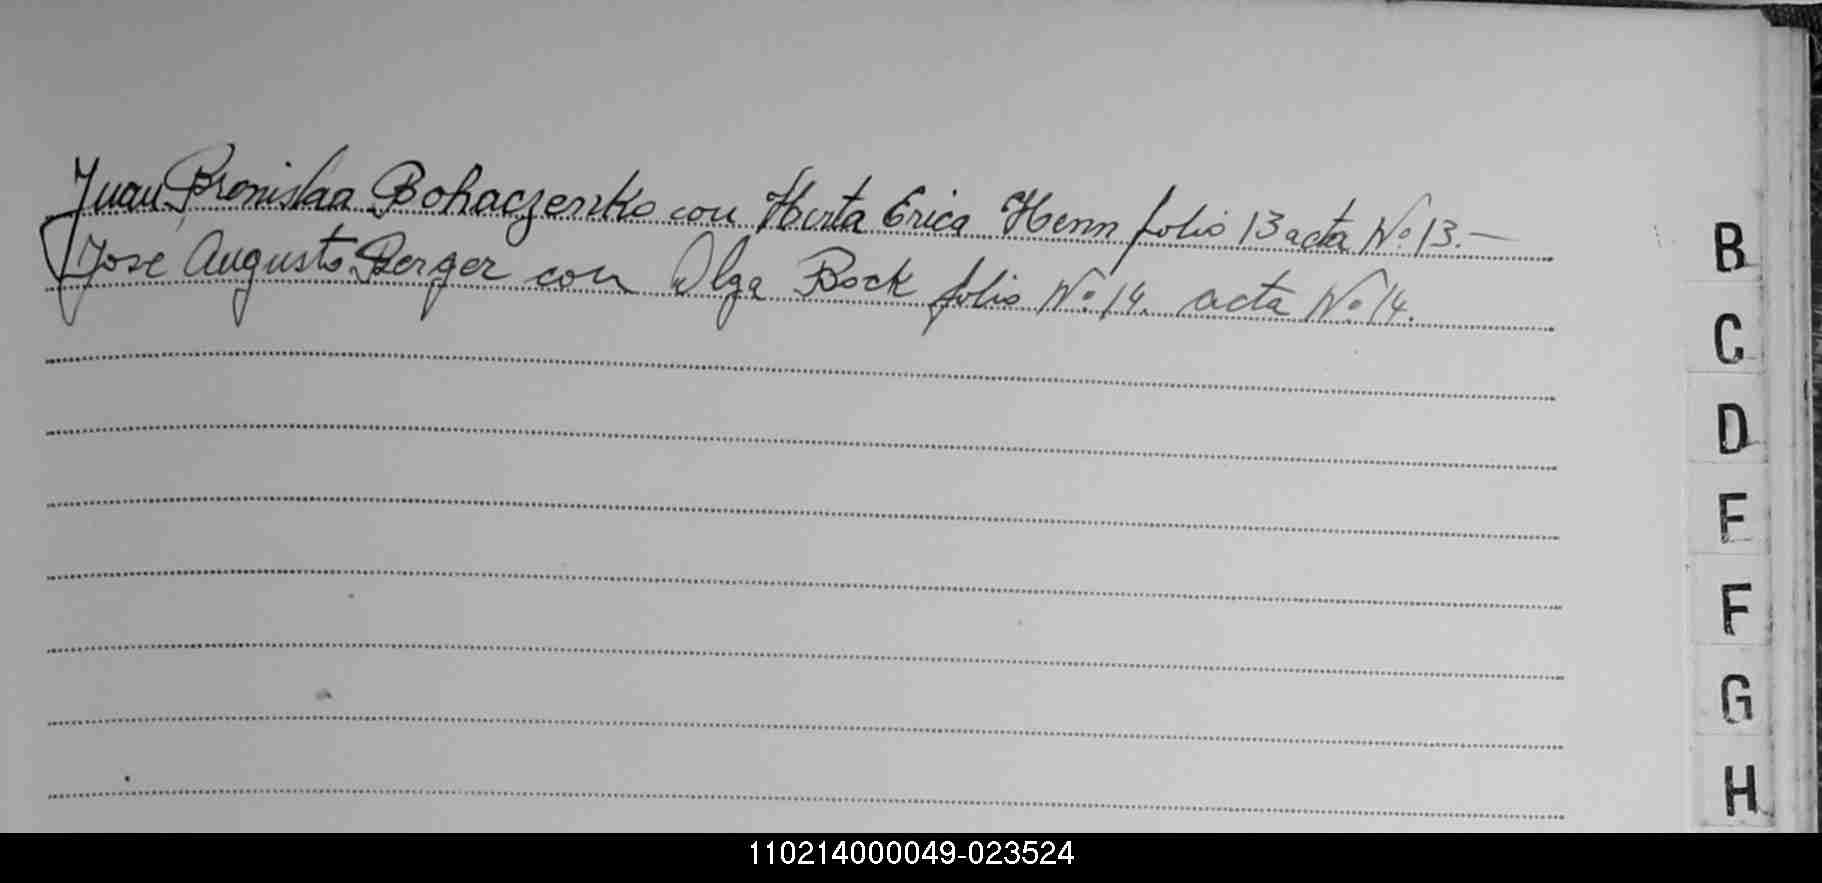 Juan Bronislaa Bohaczenko con Herta Erica Henn folio 13 acta Nº 13.—
Jose Augusto Berger con Olga Bock folio Nº 14. acta Nº 14.
B
C
D
E
F
G
H
110214000049-023524